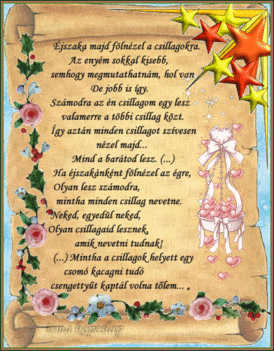 Éjszaka majd fölnézel a csillagokra.
Az enyém sokkal kisebb,
semhogy megmutathatnám, hol van
De jobb is így.
Számodra az én csillagom egy lesz
valamerre a többi csillag közt.
Így aztán minden csillagot szívesen
nézel majd...
Mind a barátod lesz. (...)
Ha éjszakánként fölnézel az égre,
Olyan lesz számodra,
mintha minden csillag nevetne.
Neked, egyedül neked,
Olyan csillagaid lesznek,
amik nevetni tudnak!
(...) Mintha a csillagok helyett egy
csomó kacagni tudó
csengettyűt kaptál volna tőlem... „